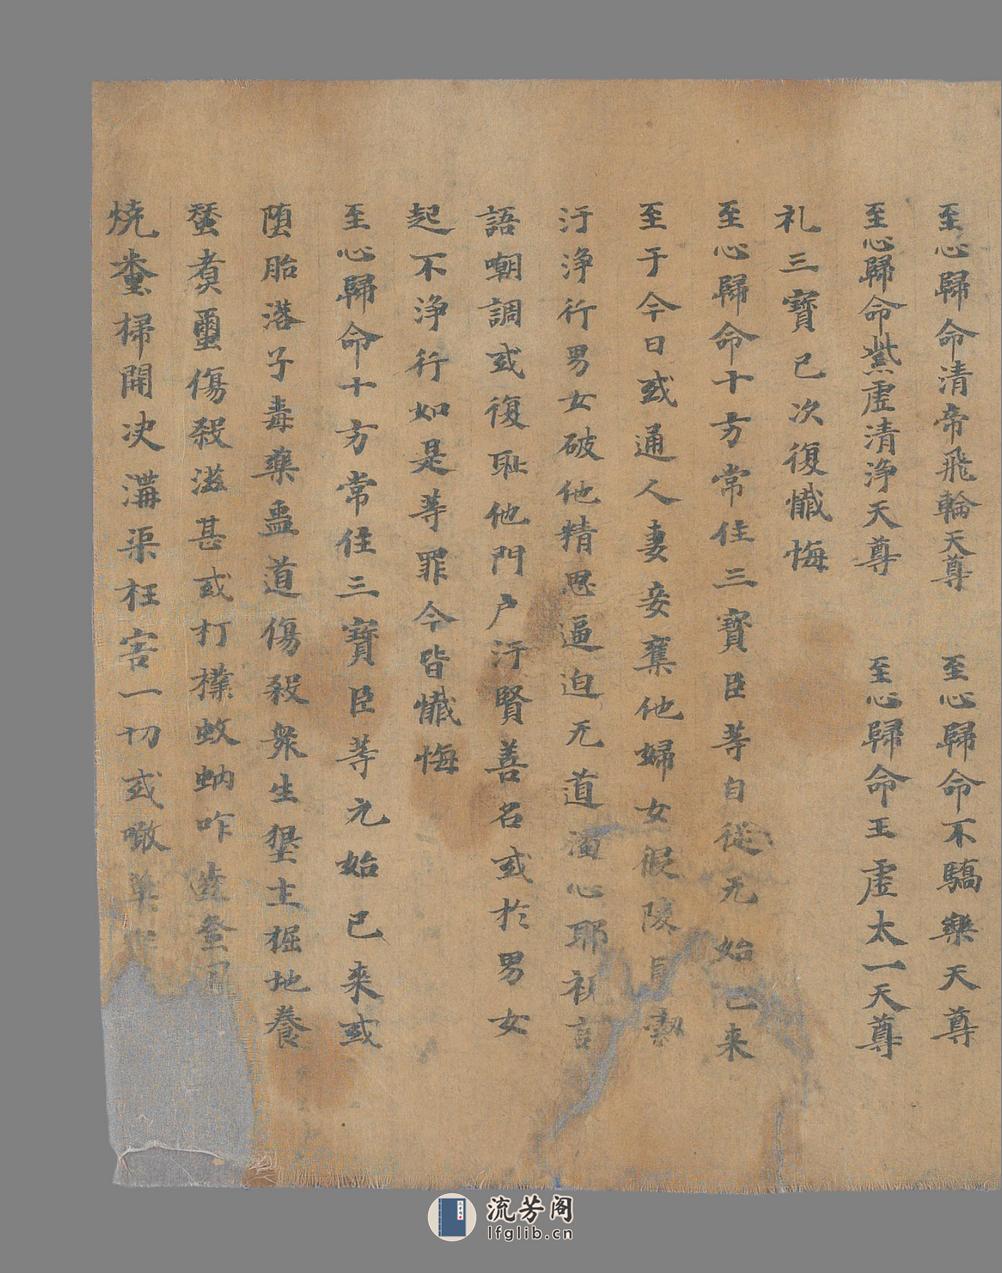 至心歸命清帝飛輪天尊 至心歸命不驕樂天尊
至心歸命紫虛清淨天尊 至心歸命玉虛太一天尊
礼三寶已次復懺悔
至心歸命十方常住三寶臣等自從无始已來
至于今日或通人妻妾棄他婦女假陵
汙淨行男女破他精思逼迫无道濁心耶視言
語嘲調或復恥他門户汙賢善名或於男女
起不淨行如是等罪今皆懺悔
至心歸命十方常住三寶臣等无始已來或
堕胎落子毒藥蛊道傷殺衆生墾土掘地養
蚕煑蠒傷殺滋甚或打撲蚊蚋咋
燒糞掃開决溝渠枉害一切或噉
流芳阁
lfglib.cn